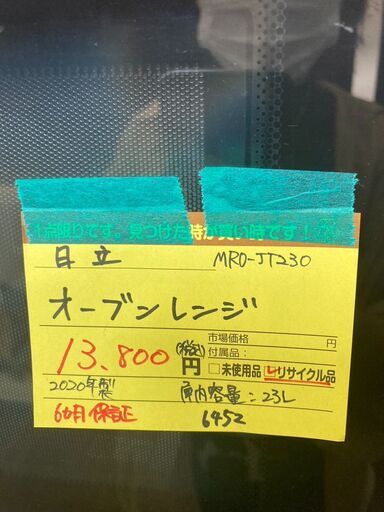 1点限りです。見つけた時が買い時です!
日立 MRO-JT230
オーブンレンジ
市場価格 円
付属品:
13,800円(税込)
□未使用品 ☑リサイクル品
2020年製 庫内容量:23L
6ヵ月保証 6452